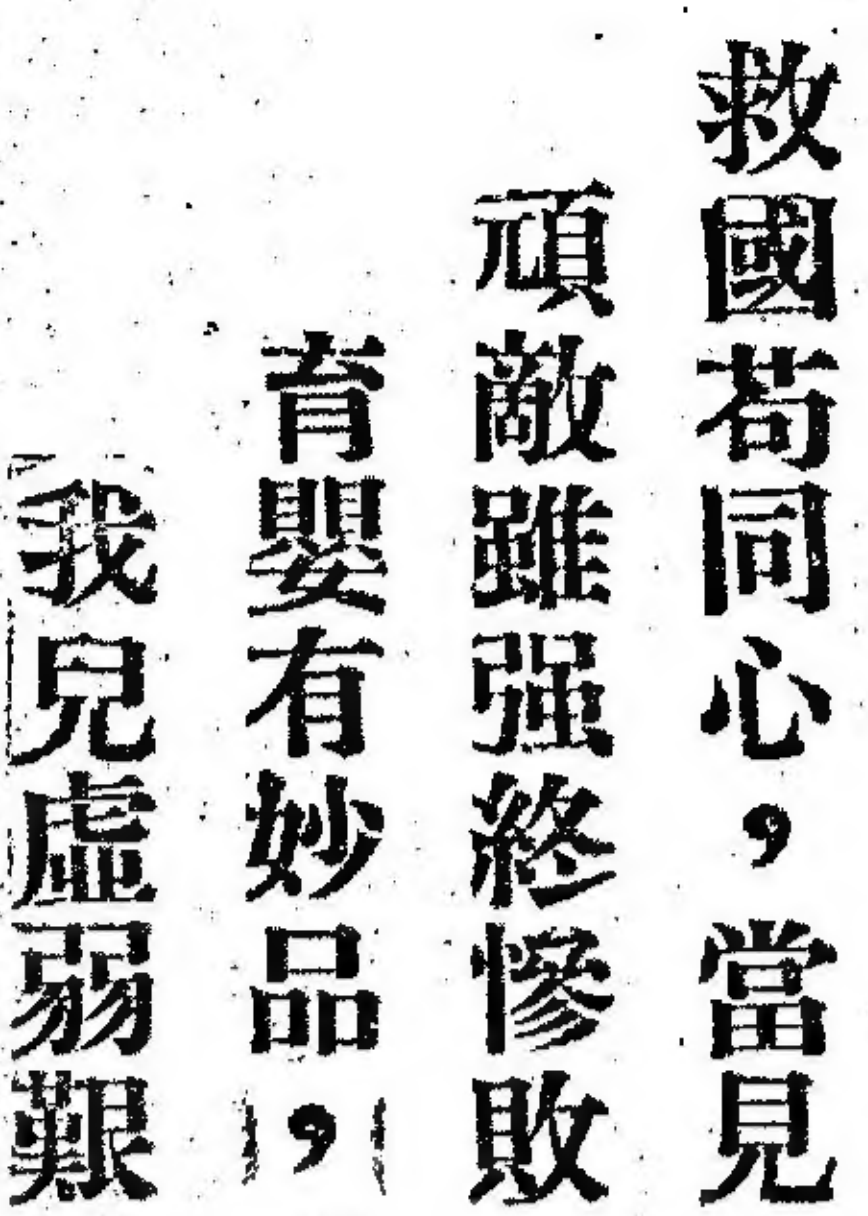 救國苟同心，當見
頑敵雖强終慘敗
育嬰有妙品，
我兒虛弱艱